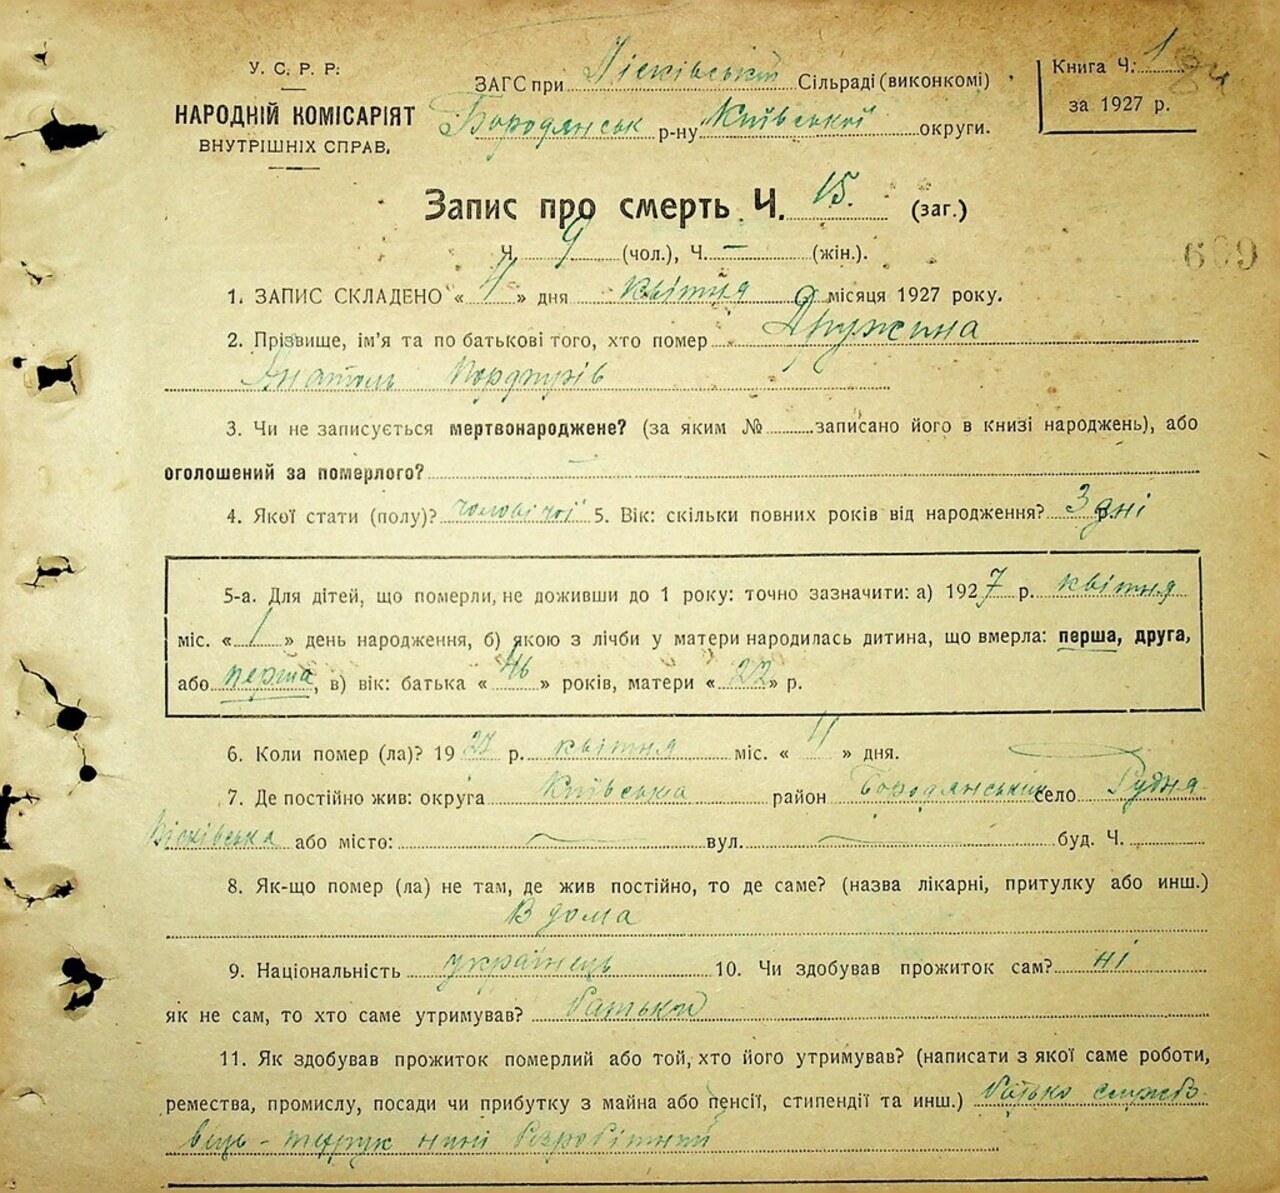 У. С. Р. Р.
НАРОДНІЙ КОМІСАРІЯТ
ВНУТРІШНІХ СПРАВ.
ЗАГС при Пісківській Сільраді (виконкомі)
Бородянськ р-ну Київської округи.
Книга Ч. 1
за 1927 р.
Запис про смерть Ч. 15. (заг.)
Ч. 9 (чол.), Ч. — (жін.).
609
1. ЗАПИС СКЛАДЕНО « 4 » дня квітня місяця 1927 року.
2. Прізвище, ім'я та по батькові того, хто помер Дружина
Анатоль
3. Чи не записується мертвонароджене? (за яким № записано його в книзі народжень), або
оголошений за померлого? —
4. Якої стати (полу)? чоловічої 5. Вік: скільки повних років від народження? 3 дні
5-а. Для дітей, що померли, не доживши до 1 року: точно зазначити: а) 1927 р. квітня
міс. « 1 » день народження, б) якою з лічби у матери народилась дитина, що вмерла: перша, друга,
або перша, в) вік: батька « 46 » років, матери « 22 » р.
6. Коли помер (ла)? 1927 р. квітня міс. « 4 » дня.
7. Де постійно жив: округа Київська район Бородянський село Рудня
Пісківська або місто: вул. буд. Ч.
8. Як-що помер (ла) не там, де жив постійно, то де саме? (назва лікарні, притулку або инш.)
В дома
9. Національність українець 10. Чи здобував прожиток сам? ні
як не сам, то хто саме утримував? батьки
11. Як здобував прожиток померлий або той, хто його утримував? (написати з якої саме роботи,
ремества, промислу, посади чи прибутку з майна або пенсії, стипендії та инш.) батько службо-
вець - нині безробітний